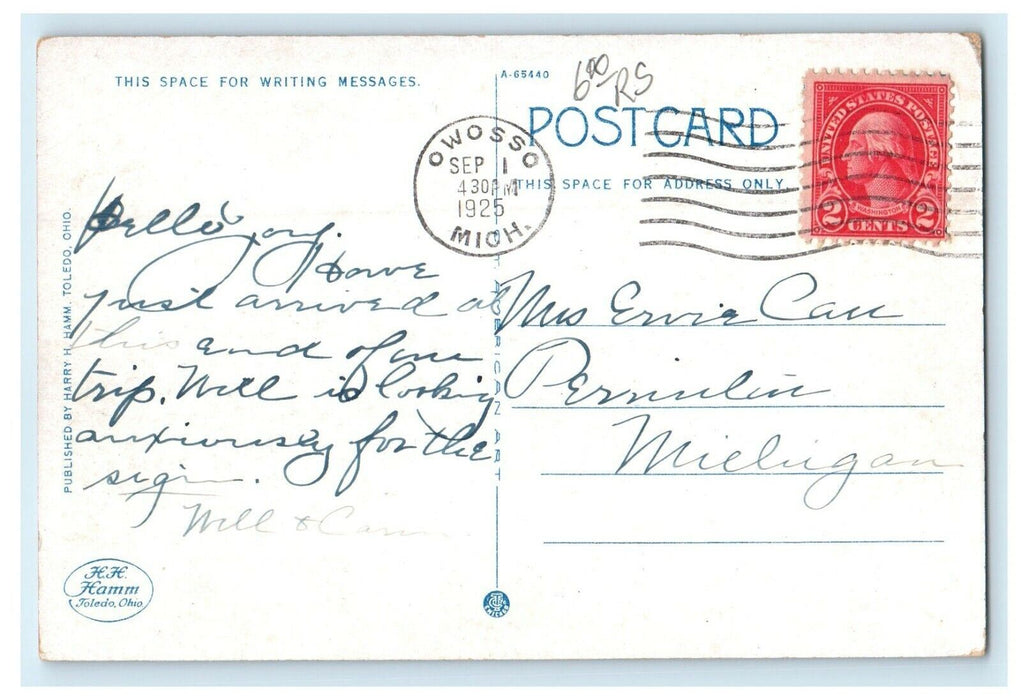 THIS SPACE FOR WRITING MESSAGES.
A-65440
6 00 RS
POST CARD
THIS SPACE FOR ADDRESS ONLY
OWOSSO
SEP 1
4 30 PM
1925
MICH.
UNITED STATES POSTAGE
WASHINGTON
2 CENTS 2
Hello
Have
just arrived at
this end of our
trip. Will is looking
anxiously for the
sign.
Will &
Mrs Ervie Carr
Perrinton
Michigan
PUBLISHED BY HARRY H. HAMM, TOLEDO, OHIO.
AMERICAN ART
H.H.
Hamm
Toledo, Ohio